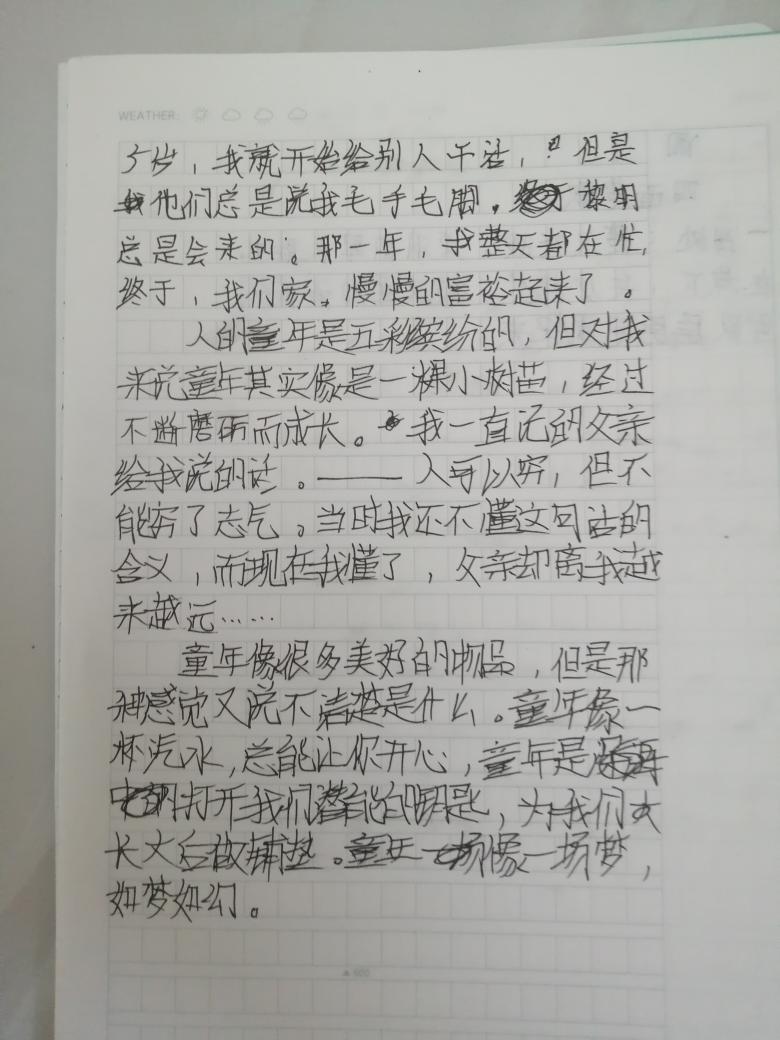 WEATHER:
5岁，我就开始给别人干活，但是
他们总是说我毛手毛脚。黎明
总是会来的。那一年，我整天都在忙,
终于，我们家慢慢的富裕起来了。
人的童年是五彩缤纷的，但对我
来说童年其实像是一棵小树苗，经过
不断磨砺而成长。我一直记的父亲
给我说的话。——人可以穷，但不
能穷了志气。当时我还不懂这句话的
含义，而现在我懂了，父亲却离我越
来越远……
童年像很多美好的物品，但是那
种感觉又说不清楚是什么。童年像一
杯汽水,总能让你开心，童年是
打开我们潜能的钥匙，为我们
长大后做铺垫。童年像一场梦，
如梦如幻。
▲600